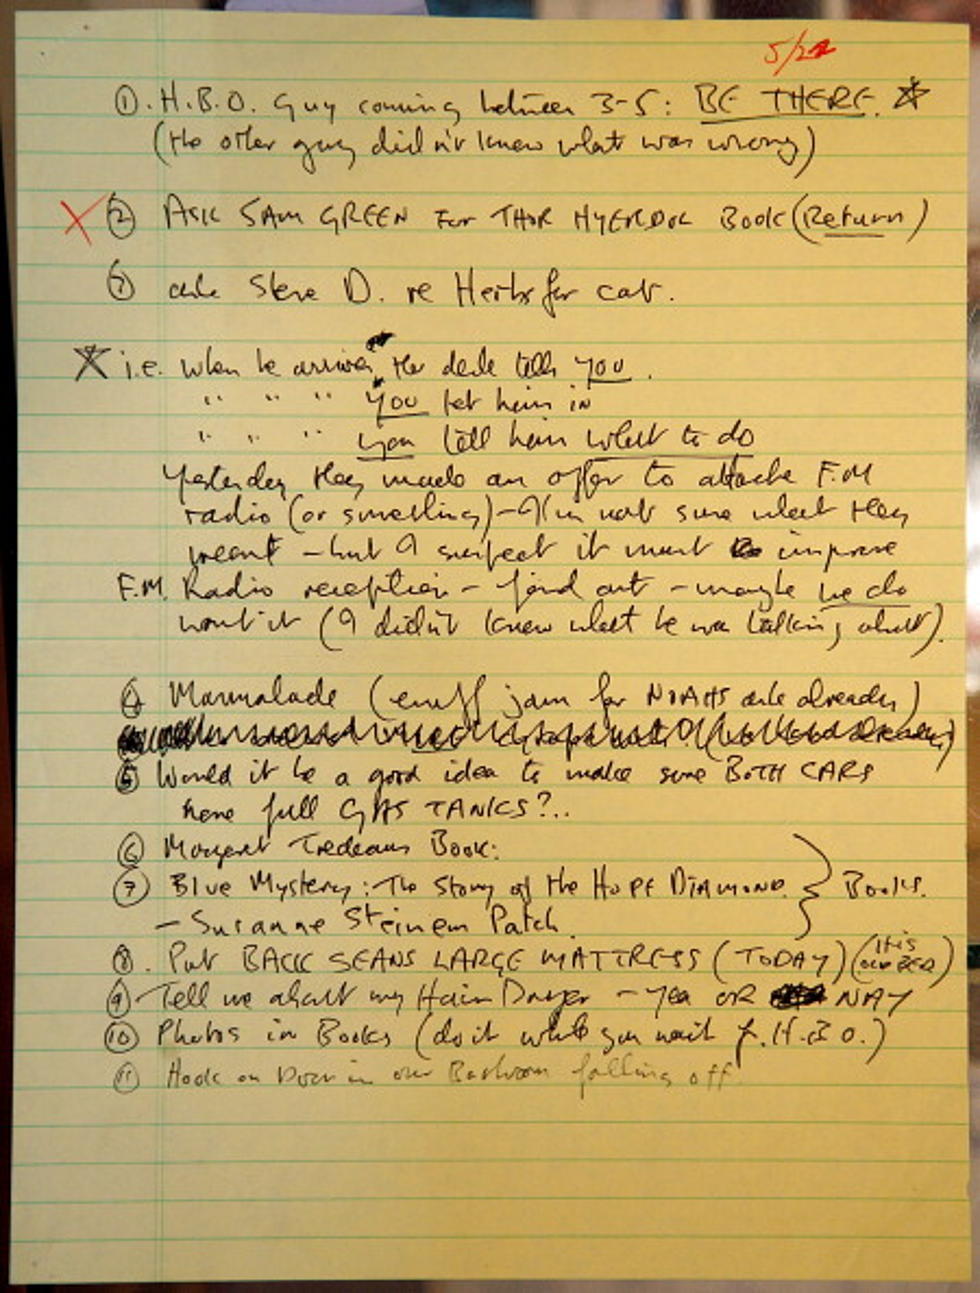 5/22
①. H.B.O. Guy coming between 3-5: BE THERE. ☆
(the other guy didn't know what was wrong)
X ② ASK SAM GREEN FOR THOR HYERDOL BOOK (Return)
③ ask Steve D. re Herbs for cat.
☆ i.e. when he arrives the desk tells YOU.
" " " YOU let him in
" " " you tell him what to do
Yesterday they made an offer to attache F.M
radio (or something) - I'm not sure what they
meant - but I suspect it must improve
F.M. Radio reception - find out - maybe we do
want it (I didn't know what he was talking about).
④ Marmalade (enuff jam for NOAHS ark already)
⑤ Would it be a good idea to make sure BOTH CARS
have full GAS TANKS?..
⑥ Margaret Tredeaus Book:
⑦ Blue Mystery: The Story of the HOPE DIAMOND. } Books.
- Susanne Steinem Patch.
⑧. Put BACK SEANS LARGE MATTRESS (TODAY) (it is
our BED)
⑨ Tell me about my Hair Dryer - yea OR NAY
⑩ Photos in Books (do it while you wait f. H.B.O.)
⑪ Hook on Door in our Bathroom falling off